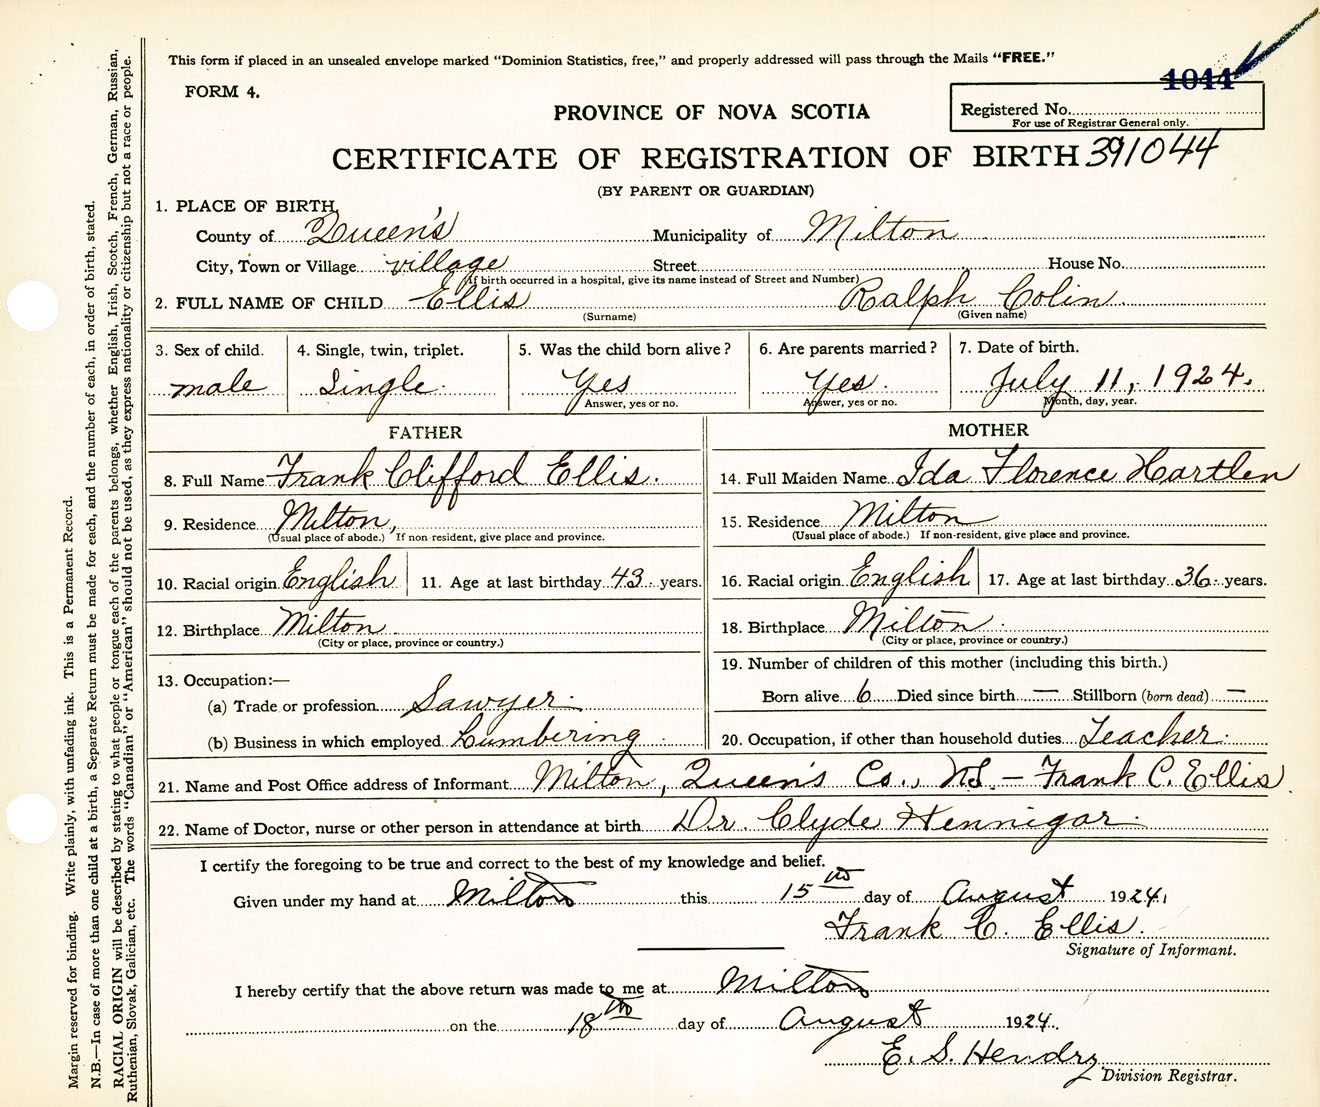 This form if placed in an unsealed envelope marked "Dominion Statistics, free," and properly addressed will pass through the Mails "FREE."
FORM 4.
1044
PROVINCE OF NOVA SCOTIA
Registered No.
For use of Registrar General only.
CERTIFICATE OF REGISTRATION OF BIRTH 391044
(BY PARENT OR GUARDIAN)
1. PLACE OF BIRTH
County of Queen's Municipality of Milton
City, Town or Village village Street House No.
(If birth occurred in a hospital, give its name instead of Street and Number)
2. FULL NAME OF CHILD Ellis Ralph Colin
(Surname) (Given name)
3. Sex of child. 4. Single, twin, triplet. 5. Was the child born alive? 6. Are parents married? 7. Date of birth.
male Single Yes Yes. July 11, 1924.
Answer, yes or no. Answer, yes or no. Month, day, year.
FATHER MOTHER
8. Full Name Frank Clifford Ellis. 14. Full Maiden Name Ida Florence Hartlen
9. Residence Milton, 15. Residence Milton
(Usual place of abode.) If non-resident, give place and province. (Usual place of abode.) If non-resident, give place and province.
10. Racial origin English 11. Age at last birthday 43 years. 16. Racial origin English 17. Age at last birthday 36 years.
12. Birthplace Milton 18. Birthplace Milton
(City or place, province or country.) (City or place, province or country.)
19. Number of children of this mother (including this birth.)
13. Occupation:—
(a) Trade or profession Sawyer Born alive 6 Died since birth — Stillborn (born dead) —
(b) Business in which employed Lumbering 20. Occupation, if other than household duties Teacher.
21. Name and Post Office address of Informant Milton, Queen's Co., N.S. — Frank C. Ellis
22. Name of Doctor, nurse or other person in attendance at birth Dr. Clyde Hennigar.
I certify the foregoing to be true and correct to the best of my knowledge and belief.
Given under my hand at Milton this 15th day of August 1924,
Frank C. Ellis.
Signature of Informant.
I hereby certify that the above return was made to me at Milton
on the 18th day of August 1924.
E. S. Hendry
Division Registrar.
Margin reserved for binding. Write plainly, with unfading ink. This is a Permanent Record.
N.B.—In case of more than one child at a birth, a Separate Return must be made for each, and the number of each, in order of birth, stated.
RACIAL ORIGIN will be described by stating to what people or tongue each of the parents belongs, whether English, Irish, Scotch, French, German, Russian,
Ruthenian, Slovak, Galician, etc. The words "Canadian" or "American" should not be used, as they express nationality or citizenship but not a race or people.